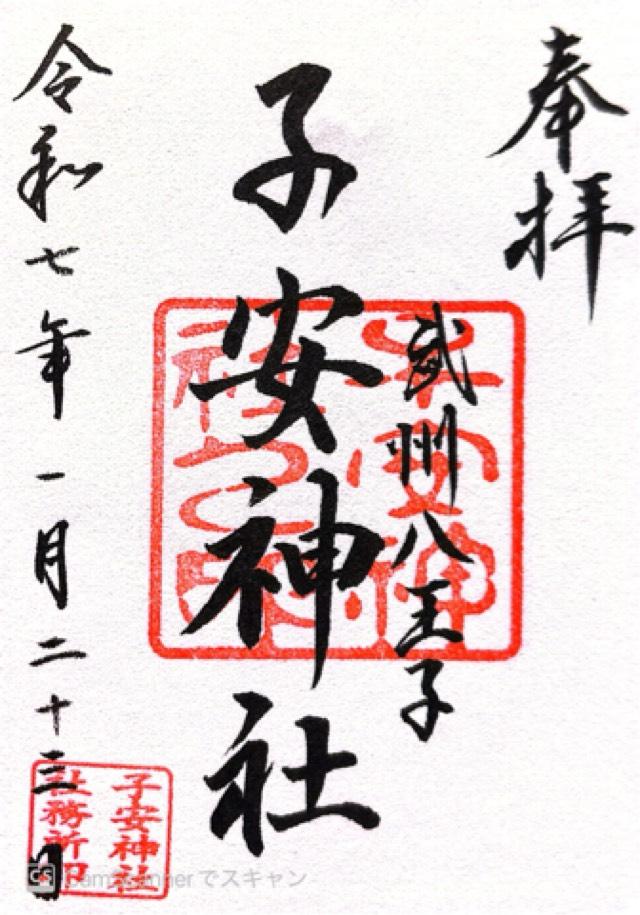 奉拝
武州八王子
子安神社
令和七年一月二十三日
子安神
社之印
子安神社
社務所印
CS CamScannerでスキャン